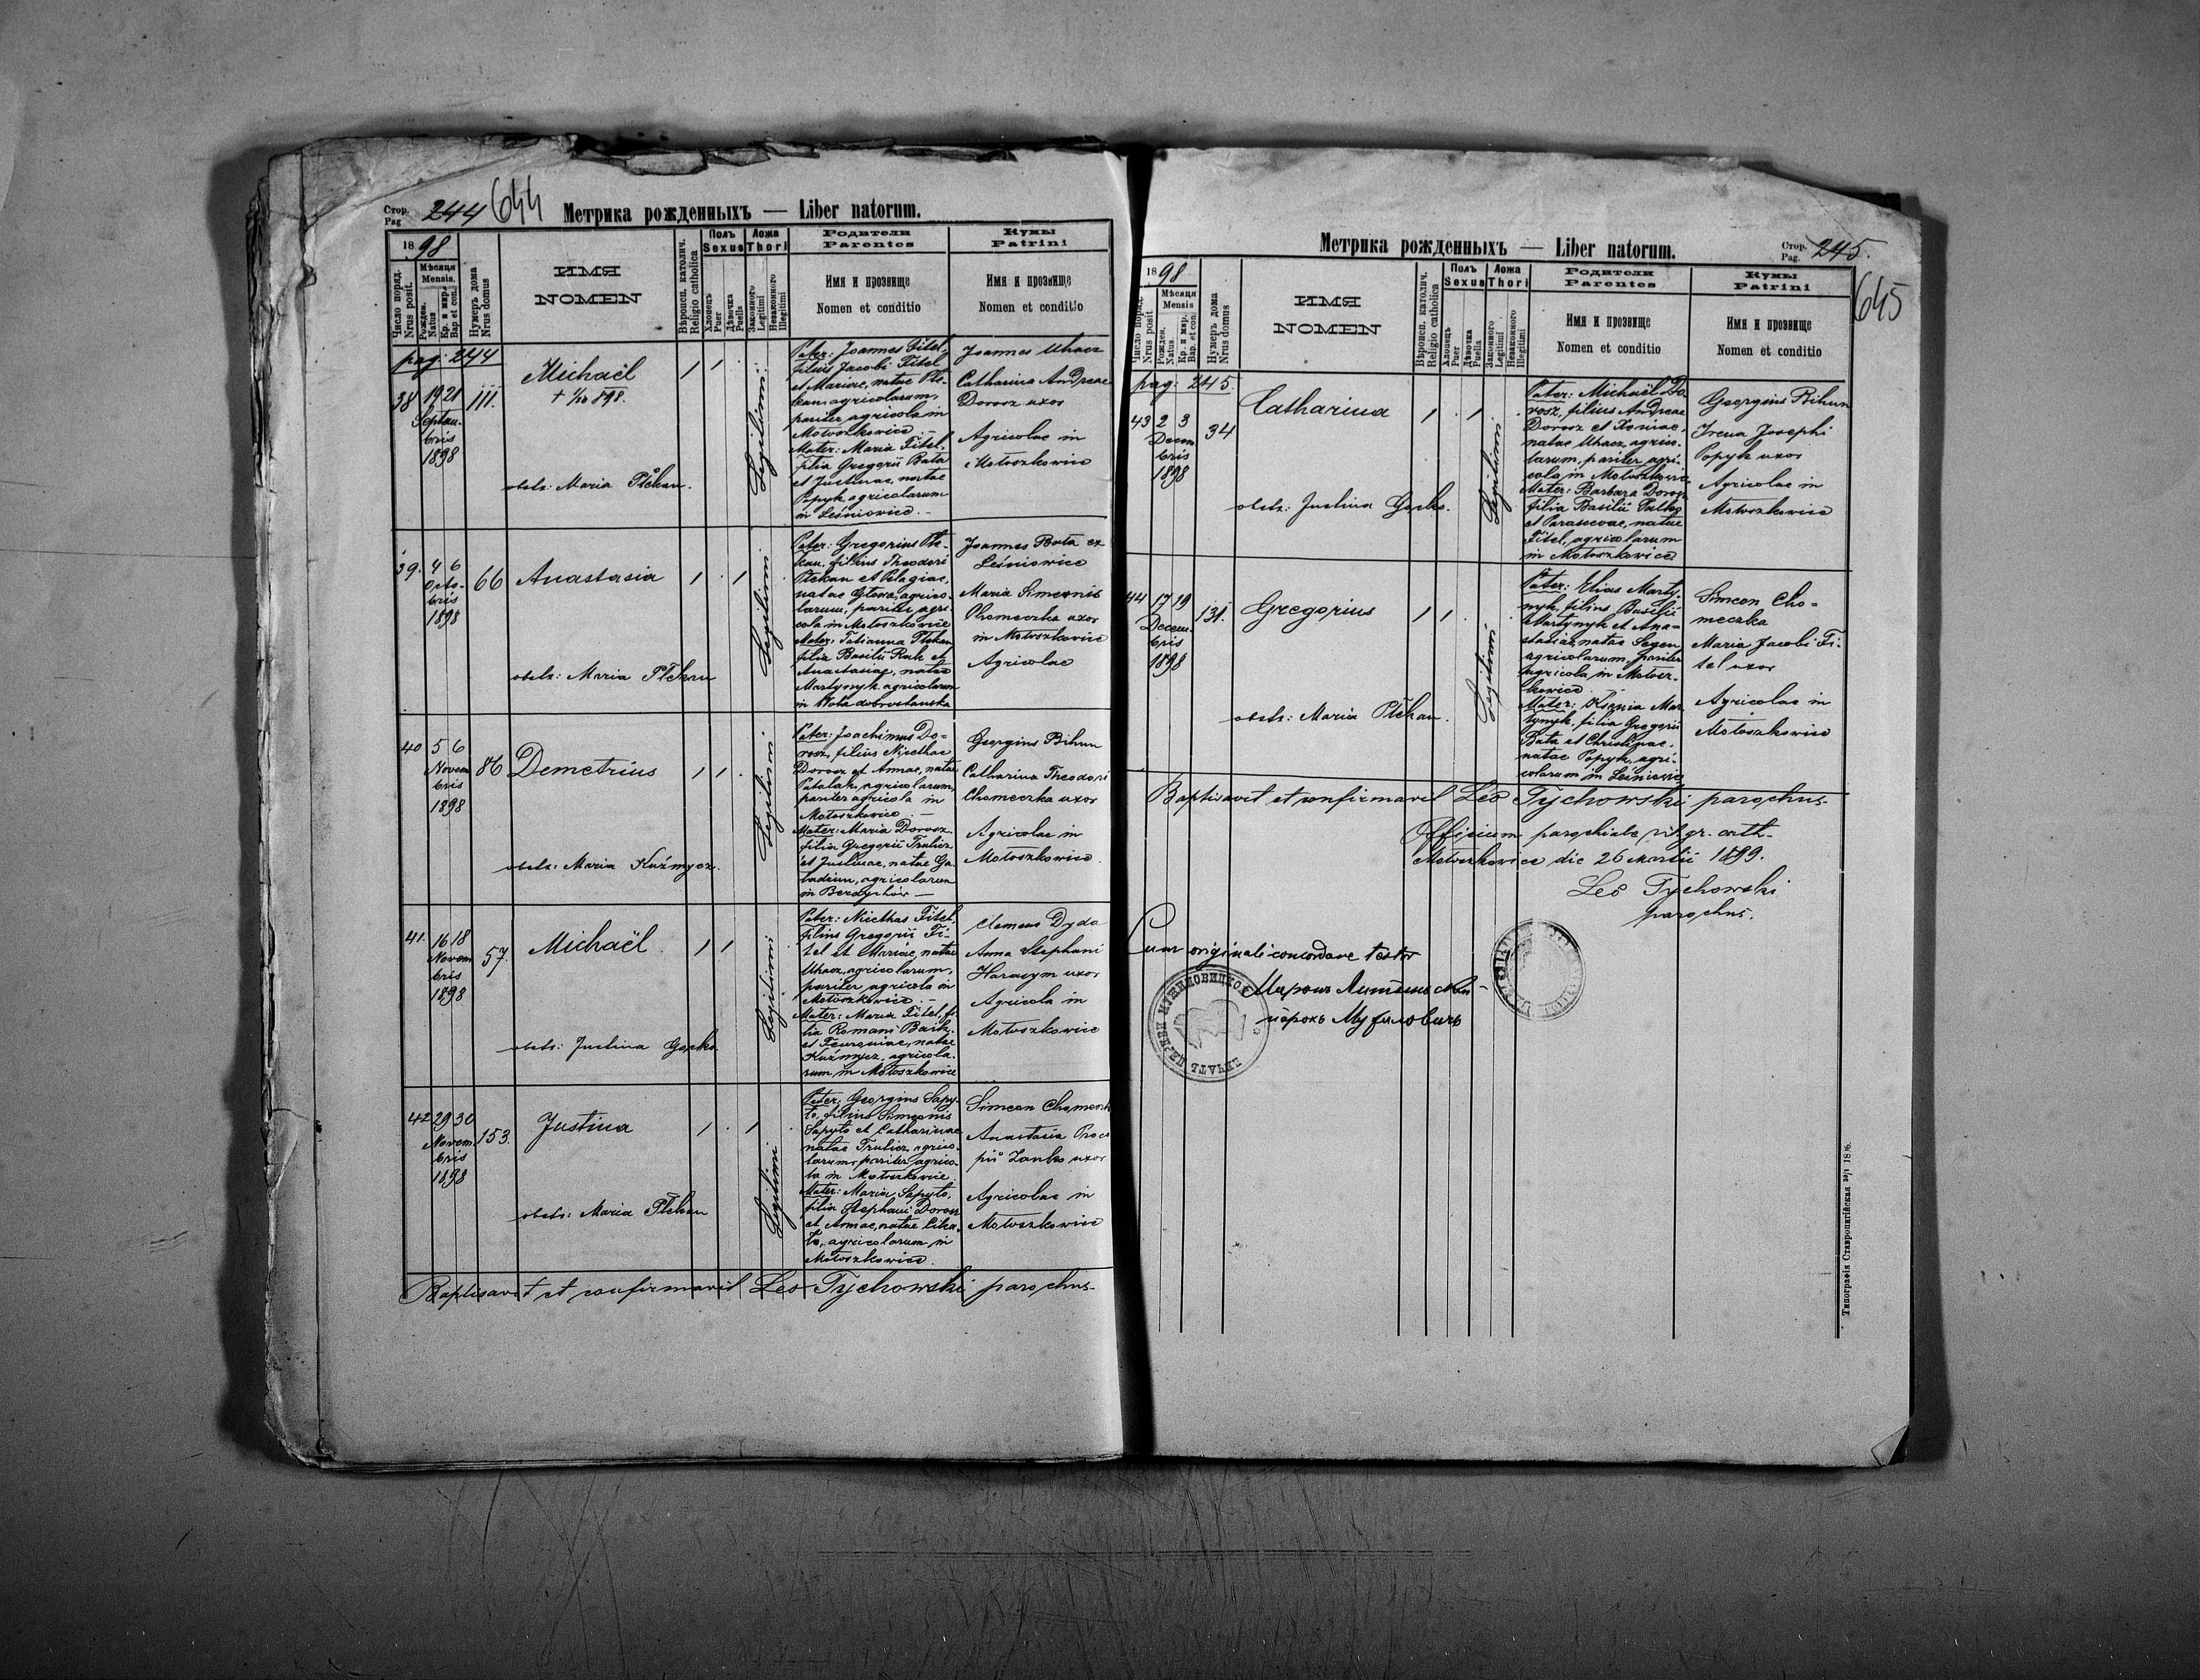 Стор.
Pag.
244
644
Метрика рожденныхъ — Liber natorum.
1898
Число поряд.
Nrus posit.
Мѣсяця
Mensis.
Рожден.
Natus
Кр. и мир.
Bap et con.
Нумеръ дома
Nrus domus
ИМЯ
NOMEN
Вѣроисп. католич.
Religio catholica
Полъ
Sexus
Хлопецъ
Puer
Дѣвочка
Puella
Ложа
Thori
Законного
Legitimi
Незаконного
Illegitimi
Родители
Parentes
Имя и прозвище
Nomen et conditio
Кумы
Patrini
Имя и прозвище
Nomen et conditio
pag: 244
38
19 21
Septem-
bris
1898
111.
Michaël
obstr: Maria Ptekan.
Legitimi
Pater: Joannes Fitel,
filius Jacobi Fitel
et Mariae, natae Pte-
kan, agricolarum,
pariter agricola in
Mołoszkowice. –
Mater: Maria Fitel,
filia Gregorii Buta
et Justinae, natae
Popyk agricolarum
in Leśniowice. –
Joannes Uhacz
Catharina Andreae
Dorosz uxor
Agricolae in
Mołoszkowice
39.
4 6
Octo-
bris
1898
66
Anastasia
obstr: Maria Ptekan
Legitimi
Pater: Gregorius Pte-
kan, filius Theodori
Ptekan et Pelagiae,
natae Głowa, agrico-
larum, pariter agri-
cola in Mołoszkowice
Mater: Tatianna Ptekan
filia Basilii Rak et
Anastasiae, natae
Martynyk agricolarum
in Wola dobrostanska
Joannes Buta ex
Leśniowice
Maria Simeonis
Chomeczka uxor
in Mołoszkowice
Agricolae
40
5 6
Novem
bris
1898
86
Demetrius
obstr: Maria Kuźmycz.
Legitimi
Pater: Joachimus Do-
rosz, filius Nicethae
Dorosz et Annae, natae
Patalak, agricolarum,
pariter agricola in
Mołoszkowice. –
Mater: Maria Dorosz
filia Gregorii Trulicz
et Justinae, natae Ga-
ladziun, agricolarum
in Berdychów –
Georgius Bihun
Catharina Theodori
Chomeczka uxor
Agricolae in
Mołoszkowice.
41.
16 18
Novem
bris
1898
57.
Michaël.
obstr: Justina Gocko.
Legitimi
Pater: Nicethas Fitel,
filius Gregorii Fi-
tel et Mariae, natae
Uhacz, agricolarum,
pariter agricola in
Mołoszkowice. –
Mater: Maria Fitel, fi-
lia Romani Baik
natae
Kuźmycz, agricola-
rum, in Mołoszkowice
Clemens Dyda
Anna Stephani
Harasym uxor
Agricola in
Mołoszkowice
42
29 30
Novem
bris
1898
153.
Justina
obstr: Maria Ptekan
Legitimi
Pater: Georgius Sapy-
to, filius Simeonis
Sapyto et Catharinae
natae Trulicz, agrico-
larum, pariter agrico-
la in Mołoszkowice
Mater: Maria Sapyto,
filia Stephani Dorosz
et Annae, natae
agricolarum in
Mołoszkowice.
Simeon
Anastasia Proco
pii Zanko uxor
Agricolae in
Mołoszkowice
Baptisavit et confirmavit Leo Tychowski parochus.
Метрика рожденныхъ — Liber natorum.
Стор.
Pag.
245.
645
1898
Число поряд.
Nrus posit
Мѣсяця
Mensis
Рожден.
Natus.
Кр. и мир.
Bap. et con.
Нумеръ дома
Nrus domus
ИМЯ
NOMEN
Вѣроисп. католич.
Religio catholica
Полъ
Sexus
Хлопецъ
Puer
Дѣвочка
Puella
Ложа
Thori
Законного
Legitimi
Незаконного
Illegitimi
Родители
Parentes
Имя и прозвище
Nomen et conditio
Кумы
Patrini
Имя и прозвище
Nomen et conditio
pag: 245.
43
2 3
Decem
bris
1898
34
Catharina
obstr: Justina Gocko.
Legitimi
Pater: Michaël Do-
rosz, filius Andreae
Dorosz et Xeniae,
natae Uhacz, agrico-
larum, pariter agri-
cola in Mołoszkowice
Mater: Barbara Dorosz
filia Basilii
et Parascevae, natae
Fitel, agricolarum
in Mołoszkowice
Georgius Bihun
Irena Josephi
Popyk uxor
Agricolae in
Mołoszkowice
44
17 19
Decem-
bris
1898
131.
Gregorius
obstr: Maria Ptekan.
Legitimi
Pater: Elias Marty-
nyk, filius Basilii
Martynyk et Ana-
stasiae, natae Segen
agricolarum, pariter
agricola in Mołosz-
kowice. –
Mater: Ksenia Mar
tynyk, filia Gregorii
Buta et Christinae,
natae Popyk, agri-
colarum in Leśniowice
Simeon Cho-
meczka
Maria Jacobi Fi-
tel uxor
Agricolae in
Mołoszkowice
Baptisavit et confirmavit Leo Tychowski parochus.
Officium parochiale rit. gr. cath.
Mołoszkowice die 26 Martii 1899.
Leo Tychowski
parochus.
Cum originali concordare testor
парохъ Мужиловичъ
Типографія Ставропигійская